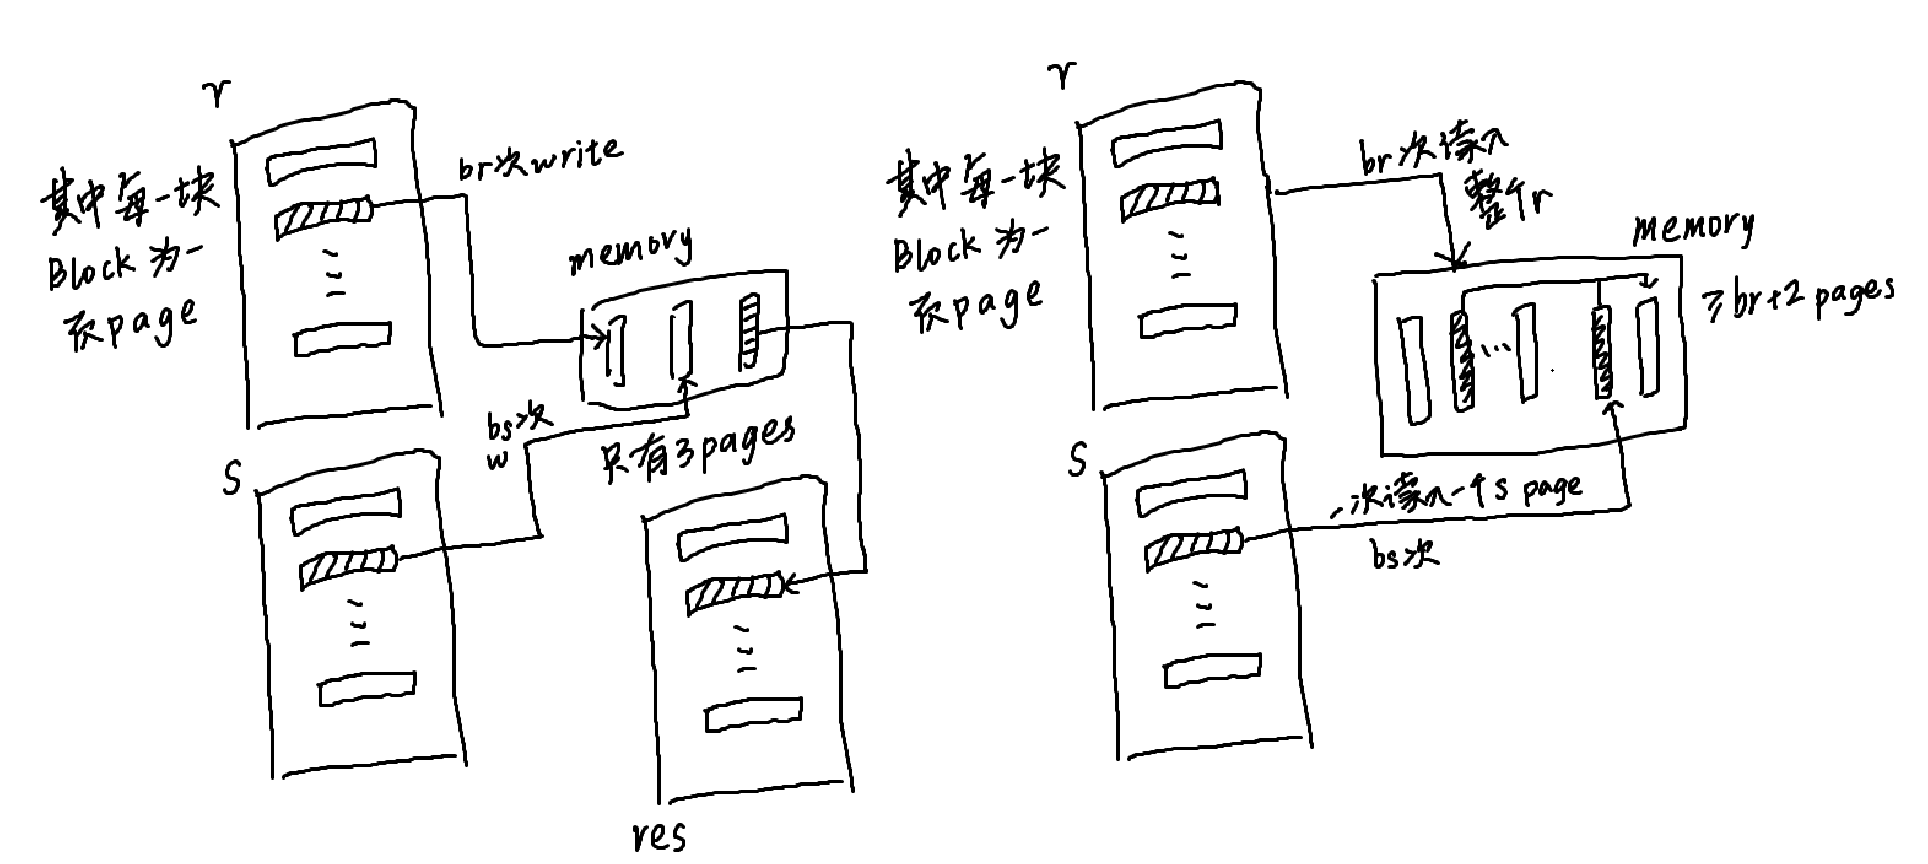 r
其中每一块
Block 为一
页page
br次write
memory
bs次
w
只有3pages
S
res
r
其中每一块
Block 为一
页page
br次读入
整个r
memory
≥br+2 pages
S
一次读入一个s page
bs次